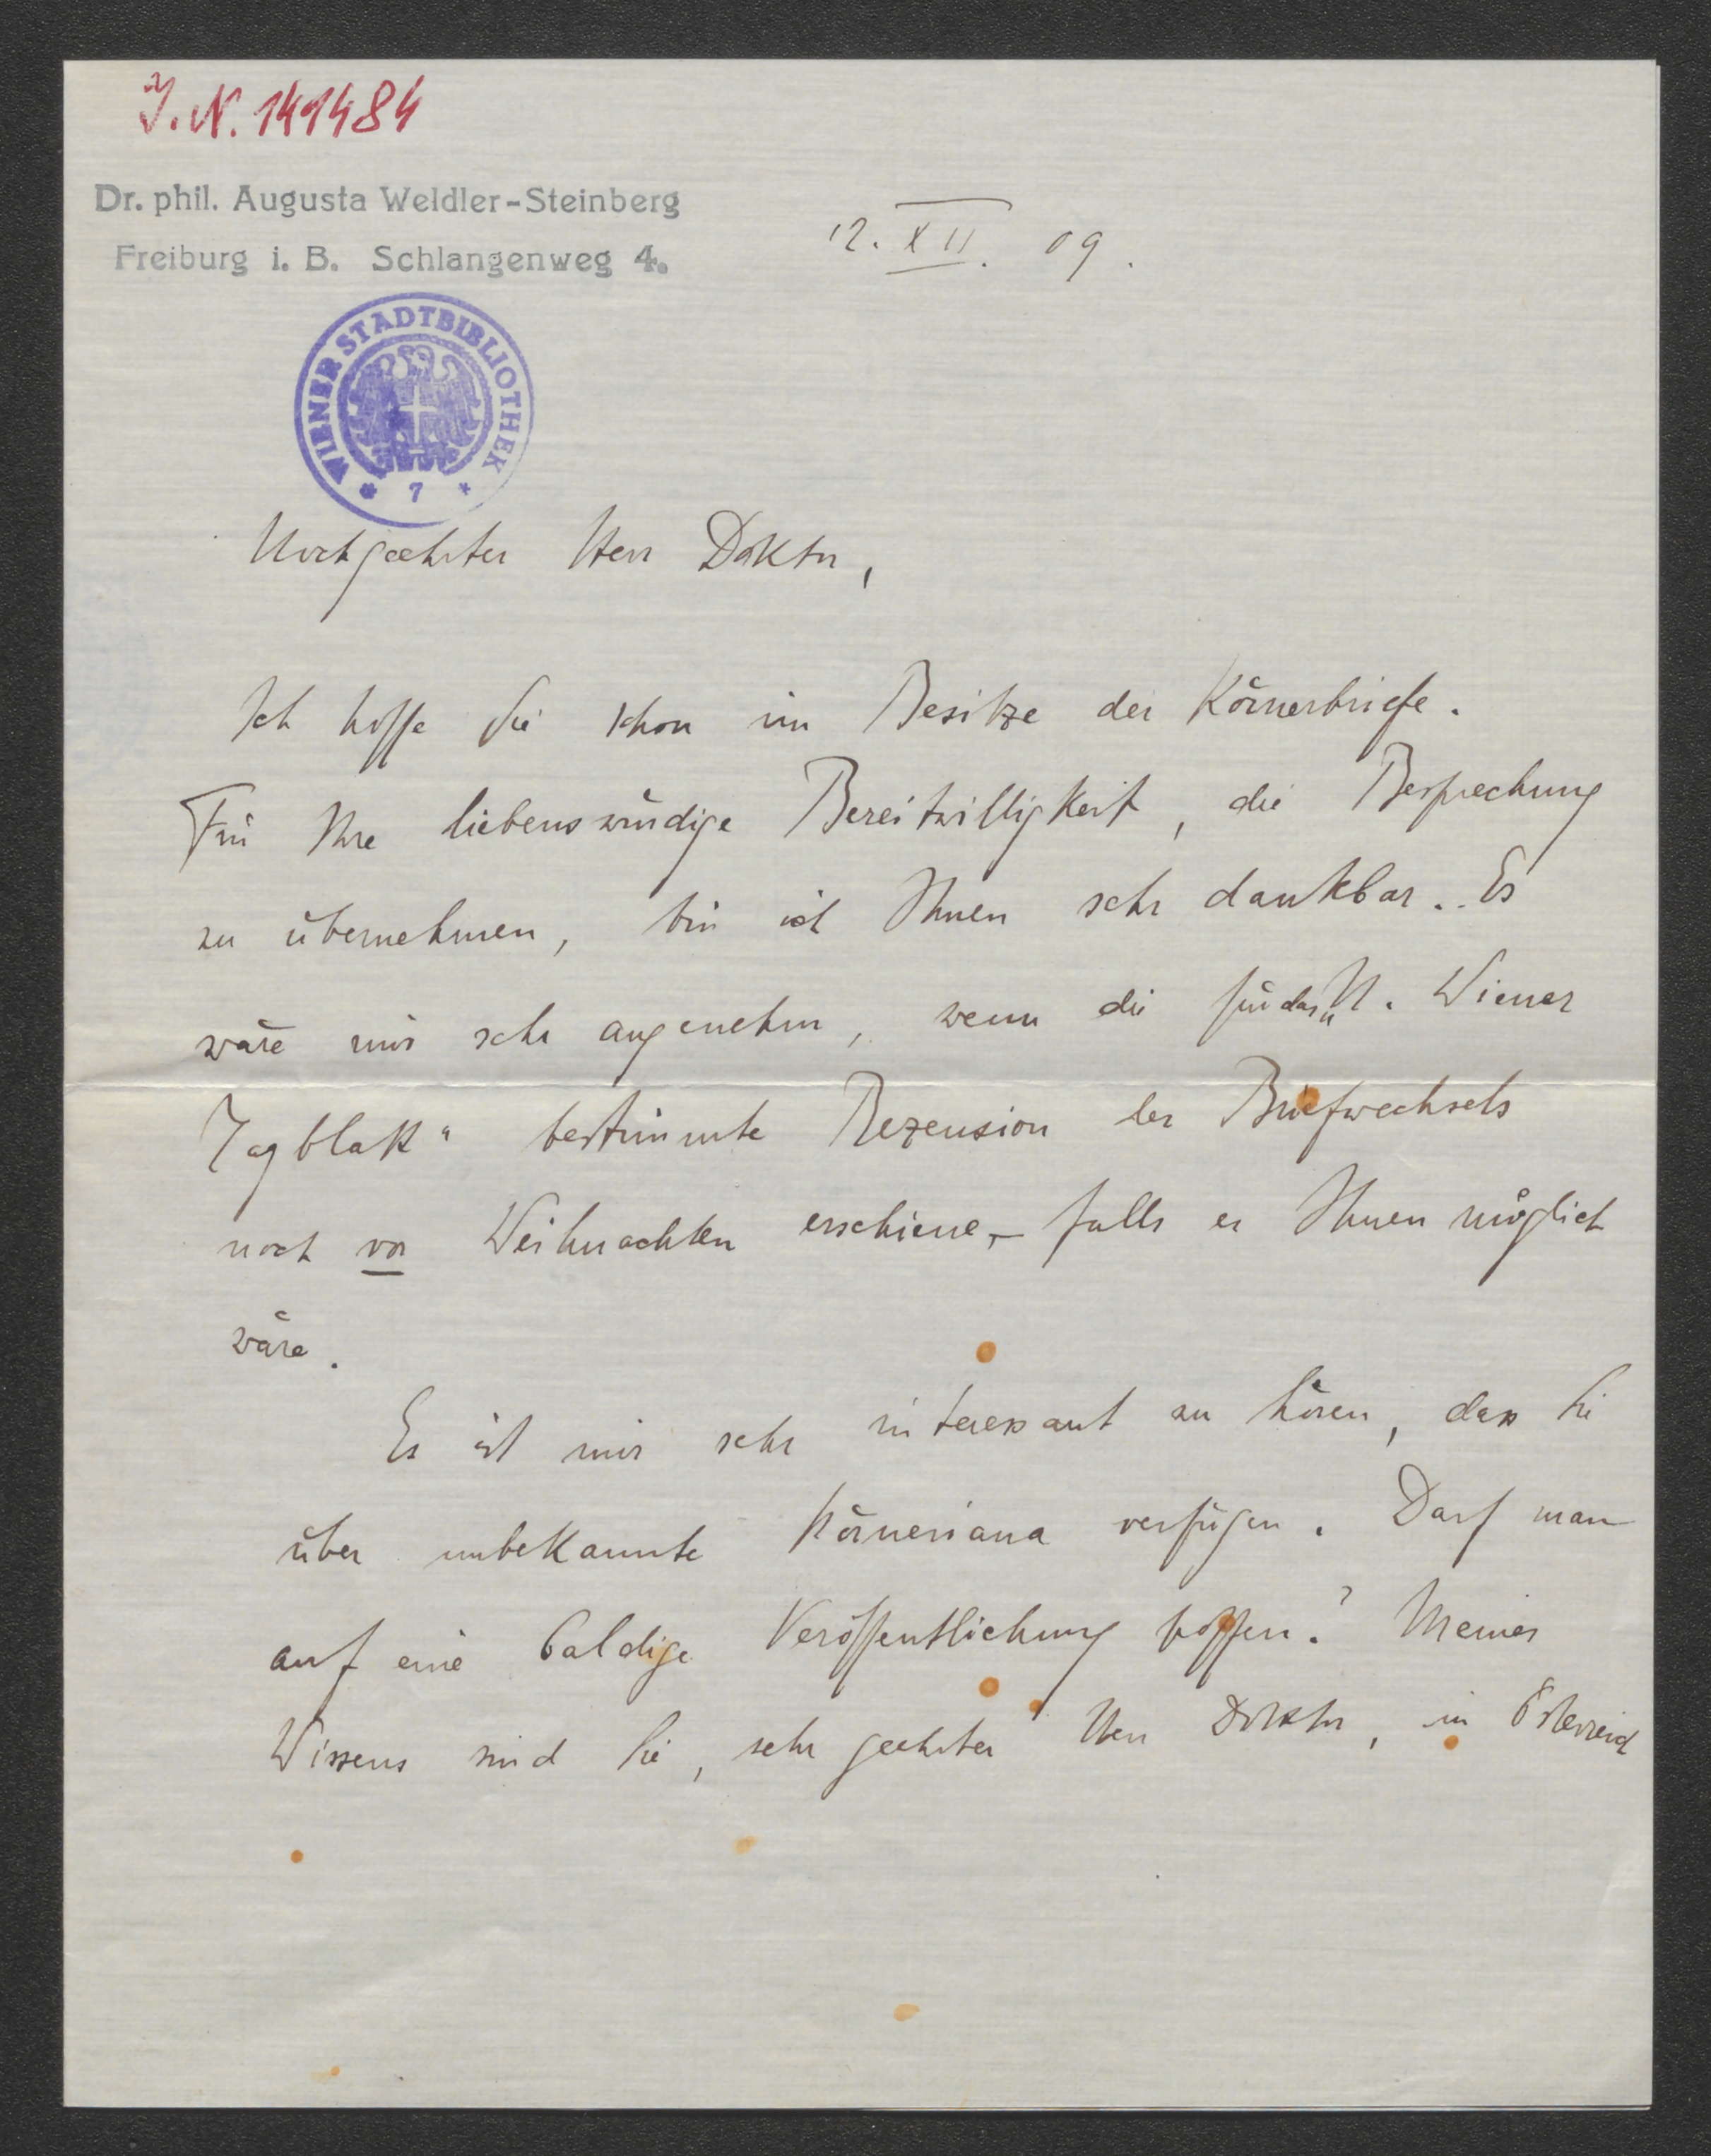 J. N. 141484
Dr. phil. Augusta Weldler-Steinberg
Freiburg i. B. Schlangenweg 4.
12. XII. 09.
WIENER STADTBIBLIOTHEK
* 7 *
Hochgeehrter Herr Doktor,
Ich hoffe Sie schon im Besitze der Körnerbriefe.
Für Ihre liebenswürdige Bereitwilligkeit, die Besprechung
zu übernehmen, bin ich Ihnen sehr dankbar. Es
wäre mir sehr angenehm, wenn die für das „N. Wiener
Tagblatt“ bestimmte Rezension des Briefwechsels
noch vor Weihnachten erschiene, – falls es Ihnen möglich
wäre.
Es ist mir sehr interessant zu hören, dass Sie
über unbekannte Körneriana verfügen. Darf man
auf eine baldige Veröffentlichung hoffen? Meines
Wissens sind Sie, sehr geehrter Herr Doktor, in Österreich